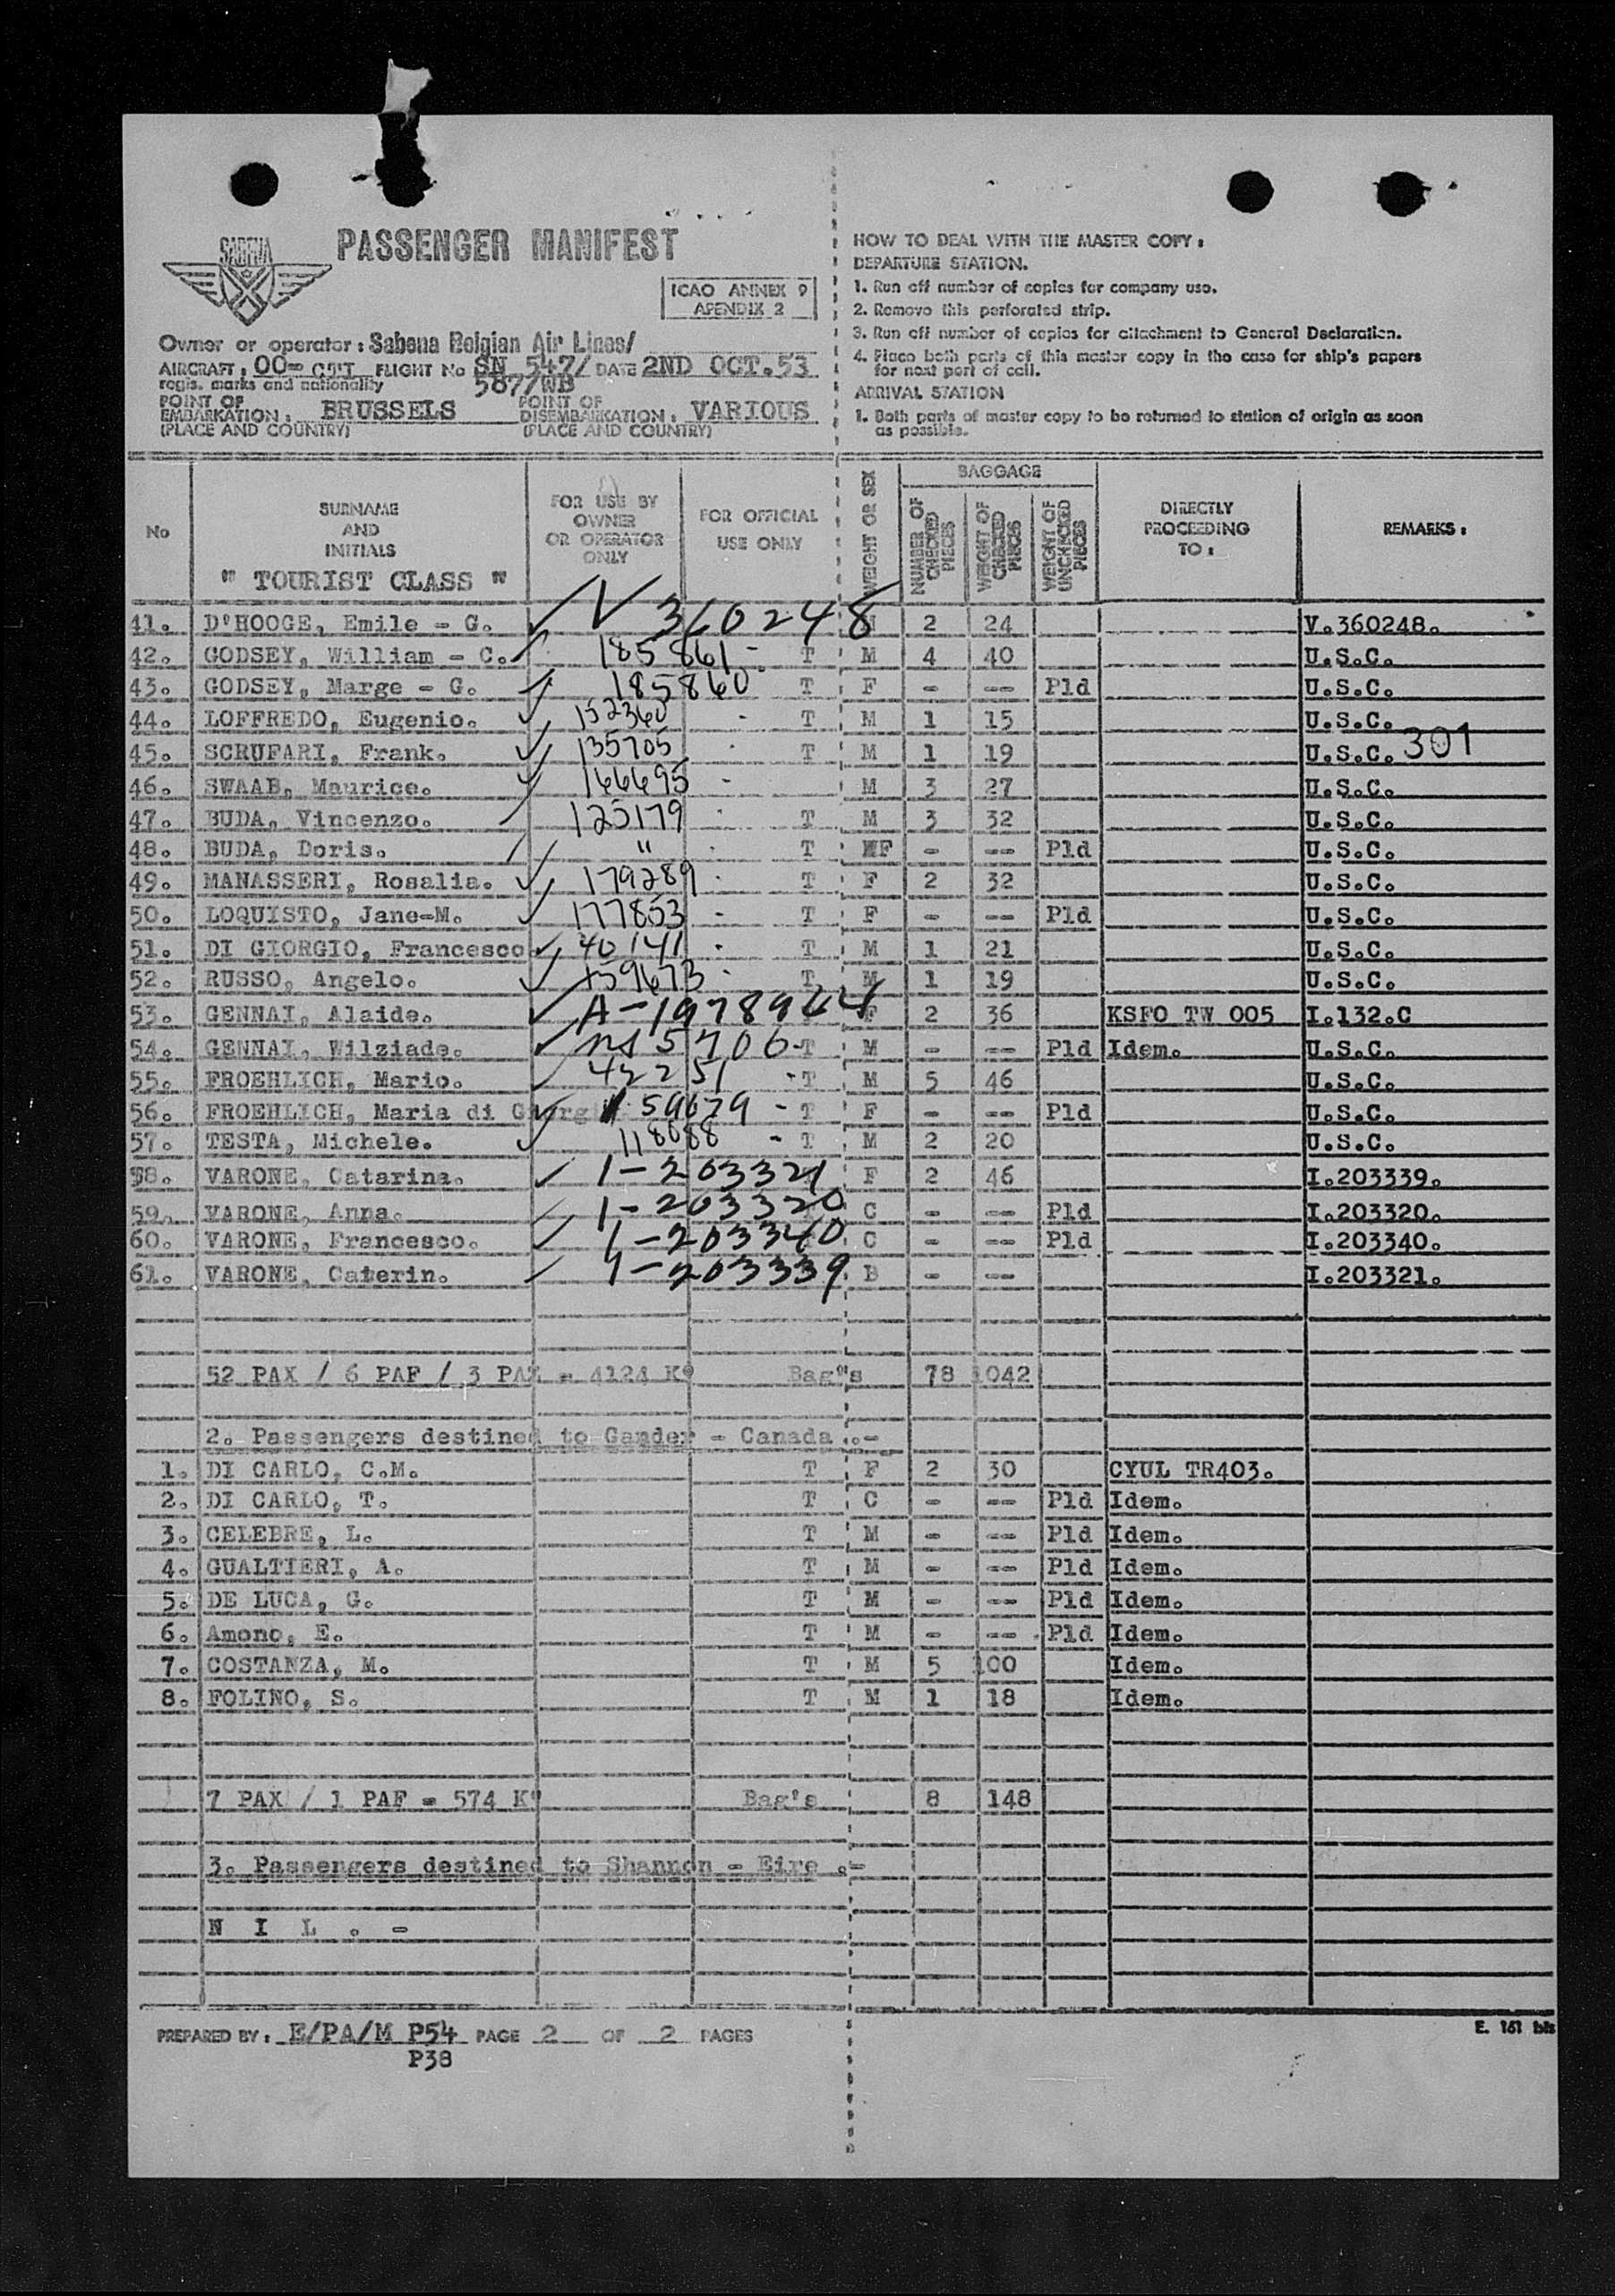 SABENA
PASSENGER MANIFEST
ICAO ANNEX 9
APENDIX 2
Owner or operator : Sabena Belgian Air Lines/
AIRCRAFT : OO- FLIGHT No SN 547/ DATE 2ND OCT.53
regis. marks and nationality 587/WB
POINT OF EMBARKATION : BRUSSELS POINT OF DISEMBARKATION : VARIOUS
(PLACE AND COUNTRY) (PLACE AND COUNTRY)
HOW TO DEAL WITH THE MASTER COPY :
DEPARTURE STATION.
1. Run off number of copies for company use.
2. Remove this perforated strip.
3. Run off number of copies for attachment to General Declaration.
4. Place both parts of this master copy in the case for ship's papers
for next port of call.
ARRIVAL STATION
1. Both parts of master copy to be returned to station of origin as soon
as possible.
No SURNAME AND INITIALS FOR USE BY OWNER OR OPERATOR ONLY FOR OFFICIAL USE ONLY WEIGHT OR SEX BAGGAGE NUMBER OF CHECKED PIECES WEIGHT OF CHECKED PIECES WEIGHT OF UNCHECKED PIECES DIRECTLY PROCEEDING TO : REMARKS :
" TOURIST CLASS "
41. D'HOOGE, Emile - G. V 360248 2 24 V.360248.
42. GODSEY, William - C. 185861 - T M 4 40 U.S.C.
43. GODSEY, Marge - G. 185860 T F - -- Pld U.S.C.
44. LOFFREDO, Eugenio. 152360 - T M 1 15 U.S.C.
45. SCRUFARI, Frank. 135705 - T M 1 19 U.S.C. 301
46. SWAAB, Maurice. 166695 - M 3 27 U.S.C.
47. BUDA, Vincenzo. 125179 - T M 3 32 U.S.C.
48. BUDA, Doris. " - T MF - -- Pld U.S.C.
49. MANASSERI, Rosalia. 179289 - T F 2 32 U.S.C.
50. LOQUISTO, Jane-M. 177853 - T F - -- Pld U.S.C.
51. DI GIORGIO, Francesco 40141 - T M 1 21 U.S.C.
52. RUSSO, Angelo. 159673 - T M 1 19 U.S.C.
53. GENNAI, Alaide. A-1978944 F 2 36 KSFO TW 005 I.132.C
54. GENNAI, Wilziade. ns 5706- T M - -- Pld Idem. U.S.C.
55. FROEHLICH, Mario. 42251 - T M 5 46 U.S.C.
56. FROEHLICH, Maria di Giorgi 59679 - T F - -- Pld U.S.C.
57. TESTA, Michele. 118688 - T M 2 20 U.S.C.
58. VARONE, Catarina. 1-203321 F 2 46 I.203339.
59. VARONE, Anna. 1-203320 C - -- Pld I.203320.
60. VARONE, Francesco. 1-203340 C - -- Pld I.203340.
61. VARONE, Caterin. 1-203339 B - -- I.203321.
52 PAX / 6 PAF / 3 PAX = 4124 K° Bag's 78 1042
2. Passengers destined to Gander - Canada .-
1. DI CARLO, C.M. T F 2 30 CYUL TR403.
2. DI CARLO, T. T C - -- Pld Idem.
3. CELEBRE, L. T M - -- Pld Idem.
4. GUALTIERI, A. T M - -- Pld Idem.
5. DE LUCA, G. T M - -- Pld Idem.
6. Amono, E. T M - -- Pld Idem.
7. COSTANZA, M. T M 5 100 Idem.
8. FOLINO, S. T M 1 18 Idem.
7 PAX / 1 PAF = 574 K° Bag's 8 148
3. Passengers destined to Shannon - Eire .-
N I L . -
PREPARED BY : E/PA/M P54 PAGE 2 OF 2 PAGES
P38
E. 161 bis